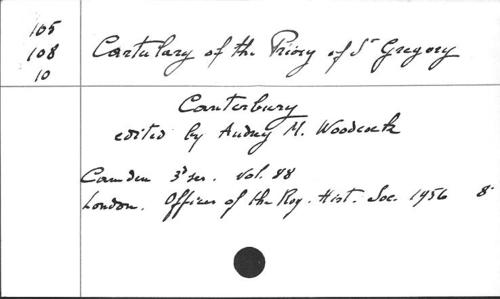 105
108
10
Cartulary of the Priory of St Gregory
Canterbury
edited by Audrey M. Woodcock
Camden 3d ser. vol. 88
London. Offices of the Roy. Hist. Soc. 1956 8º